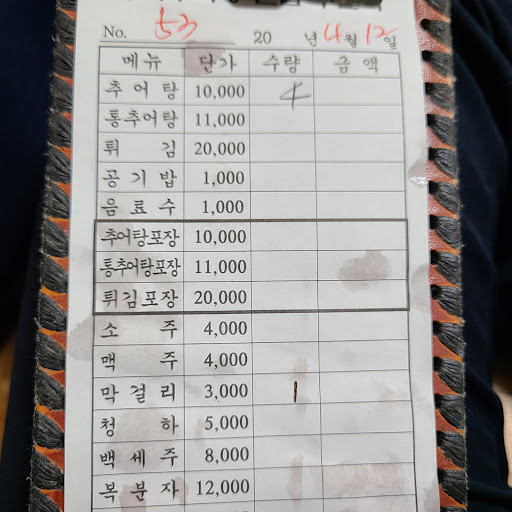 No. 53 20 년 4월 12일
메뉴 단가 수량 금액
추어탕 10,000 4
통추어탕 11,000
튀김 20,000
공기밥 1,000
음료수 1,000
추어탕포장 10,000
통추어탕포장 11,000
튀김포장 20,000
소주 4,000
맥주 4,000
막걸리 3,000 1
청하 5,000
백세주 8,000
복분자 12,000